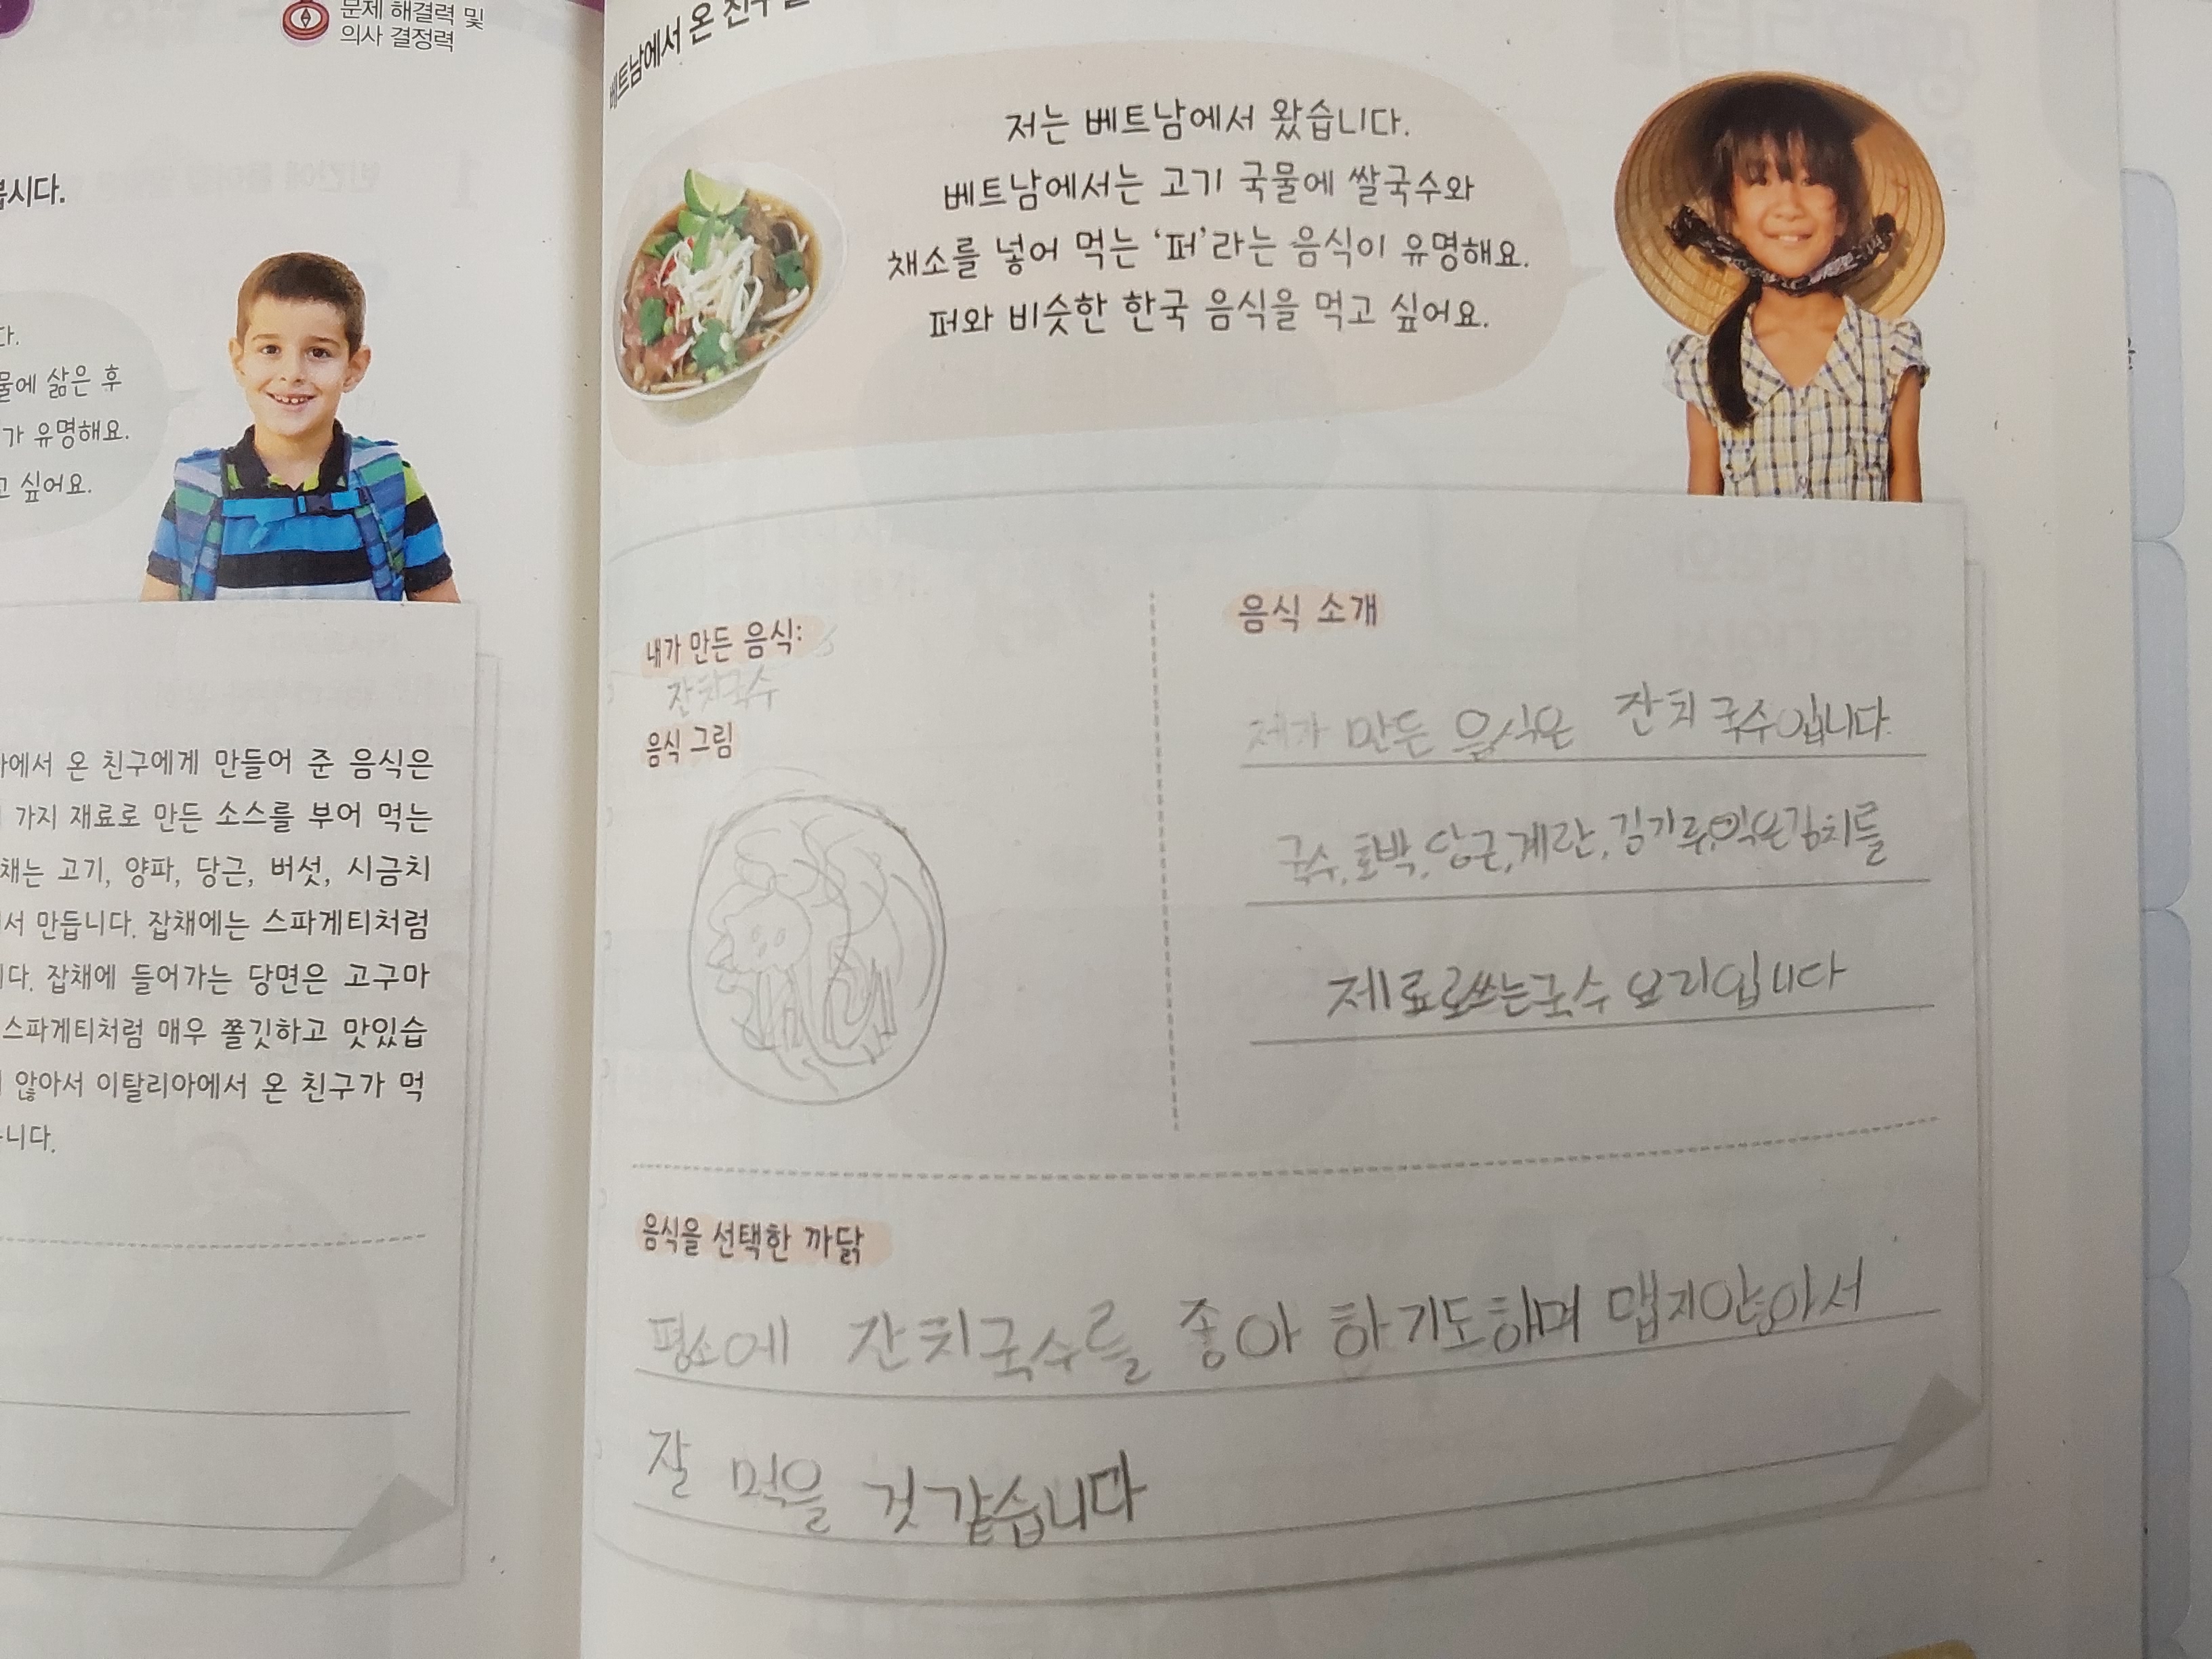 문제 해결력 및
의사 결정력
봅시다.
다.
물에 삶은 후
가 유명해요.
고 싶어요.
에서 온 친구에게 만들어 준 음식은
가지 재료로 만든 소스를 부어 먹는
채는 고기, 양파, 당근, 버섯, 시금치
서 만듭니다. 잡채에는 스파게티처럼
다. 잡채에 들어가는 당면은 고구마
스파게티처럼 매우 쫄깃하고 맛있습
않아서 이탈리아에서 온 친구가 먹
니다.
베트남에서 온 친구
저는 베트남에서 왔습니다.
베트남에서는 고기 국물에 쌀국수와
채소를 넣어 먹는 ‘퍼’라는 음식이 유명해요.
퍼와 비슷한 한국 음식을 먹고 싶어요.
내가 만든 음식:
잔치국수
음식 그림
음식 소개
제가 만든 음식은 잔치국수입니다.
국수, 호박, 당근, 계란, 김가루, 익은김치를
제료로쓰는국수 요리입니다
음식을 선택한 까닭
평소에 잔치국수를 좋아 하기도하며 맵지안아서
잘 먹을 것 같습니다